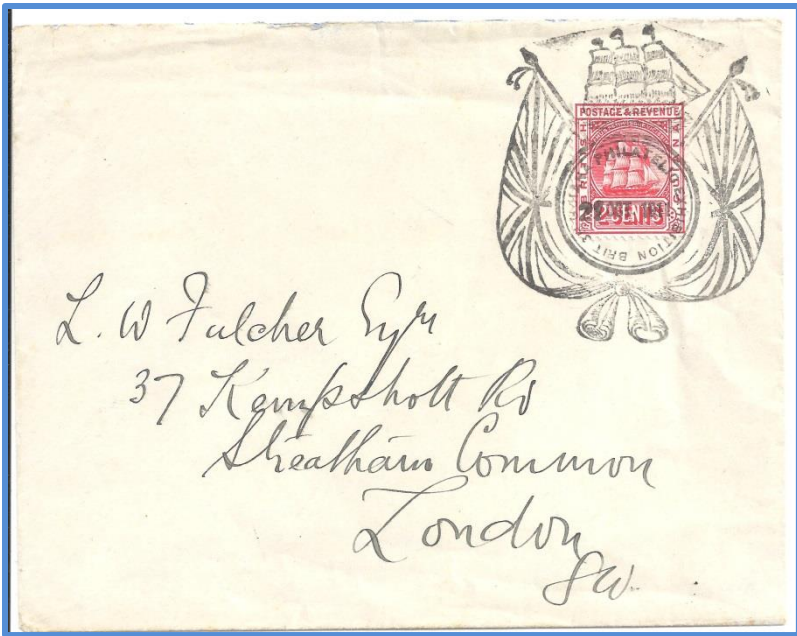 POSTAGE & REVENUE
BRITISH GUIANA
PHILATELIC
2 CENTS
L. W Fulcher Esqr
37 Kempshott Rd
Streatham Common
London
SW.